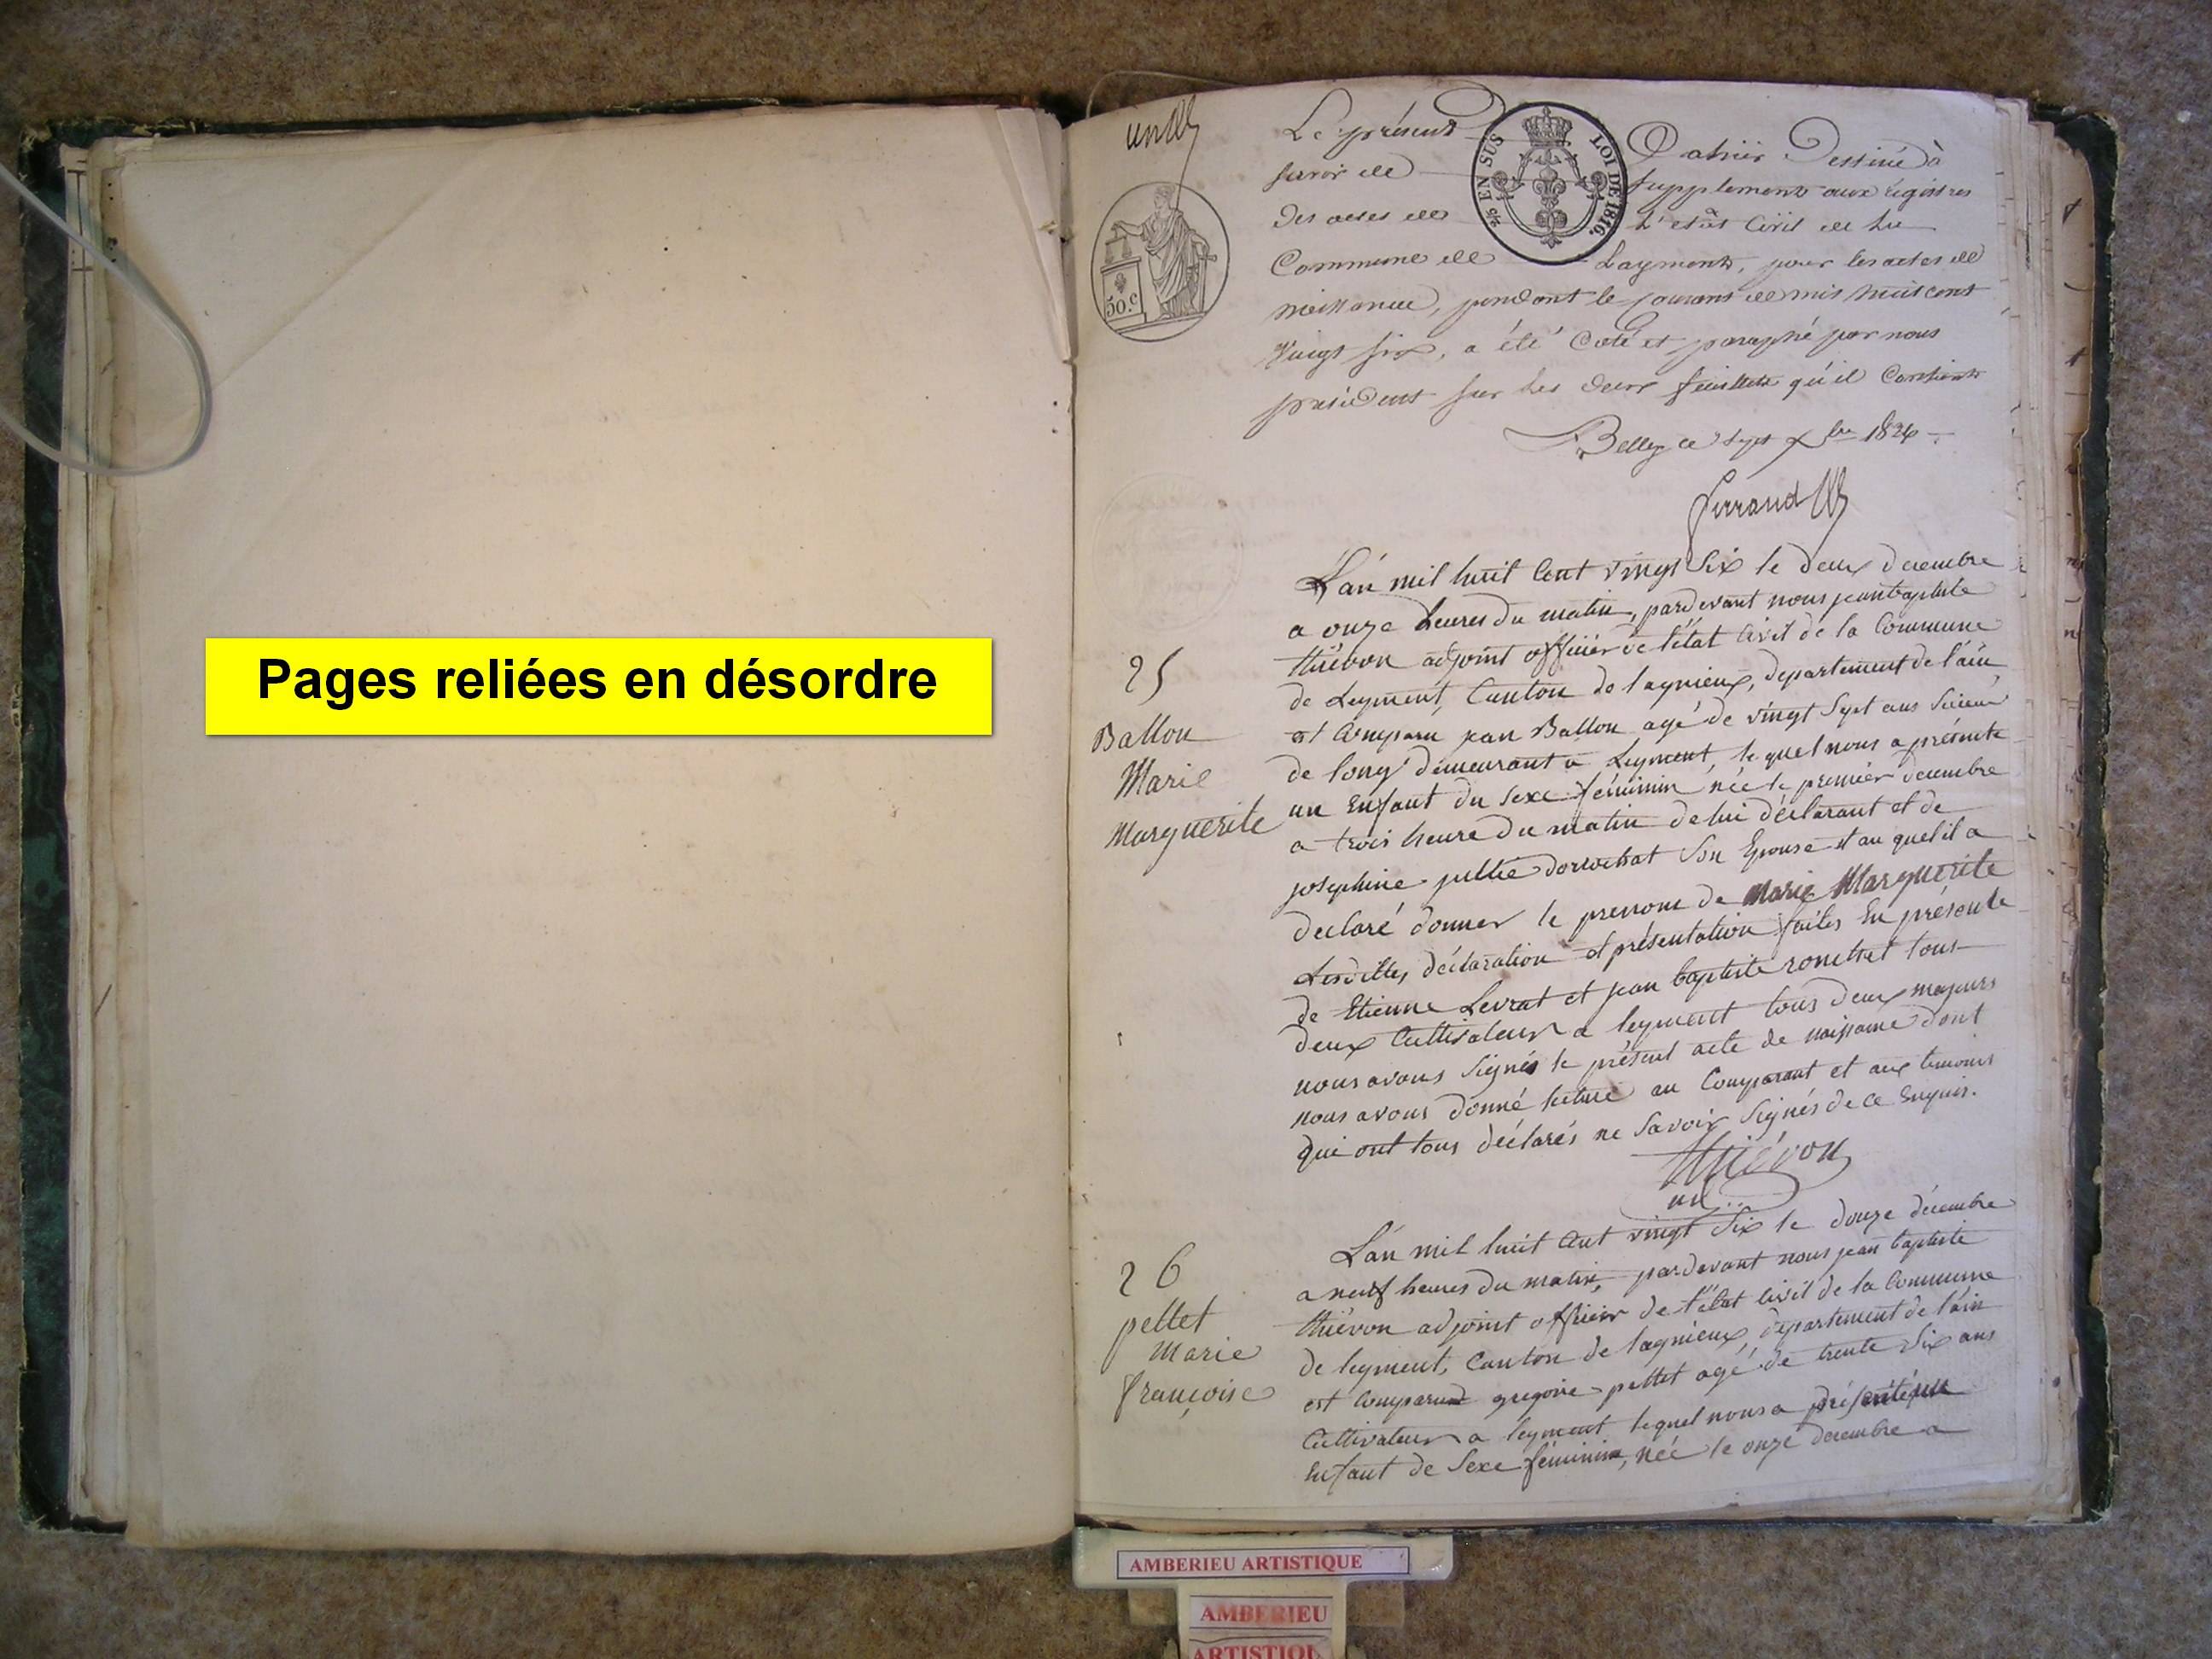 Pages reliées en désordre
Le présent Cahier Destiné à
servir de supplément aux régistres
des actes de L'etât Civil de la
Commune de Leyment, pour les actes de
naissance, pendant le courant de mil huit cent
Vingt six, a été Coté et paraphé par nous
président sur les deux feuillets qu'il Contient
Belley ce sept Xbre 1826
Ferrand
2/10 EN SUS LOI DE 1816.
50.c
25
Ballon
Marie
Marguerite
L'an mil huit Cent vingt Six le deux decembre
a onze heures du matin, pardevant nous jean baptiste
thiévon adjoint officier de l'état Civil de la Commune
de Leyment, Canton de lagnieux, departement de l'ain
est Comparu jean Ballon agé de vingt Sept ans Scieur
de long demeurant a Leyment, lequel nous a présenté
un Enfant du Sexe féminin née le premier decembre
a trois heure du matin de lui déclarant et de
josephine Son Epouse et au quel il a
declaré donner le prenom de Marie Marguerite
Lesdittes déclaration et présentation faites En présente
de Etienne Levrat et jean baptiste ronchet tous
deux Cultivateur a leyment tous deux majeurs
nous avons Signés le présent acte de naissance dont
nous avons donné lecture au Comparant et aux temoins
qui ont tous déclarés ne Savoir Signés de ce Enquis.
Thiévon
26
pettet
Marie
françoise
L'an mil huit Cent vingt Six le douze décembre
a neuf heures du matin, pardevant nous jean baptiste
thiévon adjoint officier de l'état Civil de la Commune
de leyment, Canton de lagnieux, departement de l'ain
est Comparu gregoire pettet agé de trente Six ans
Cultivateur a leyment lequel nous a présenté un
Enfant de Sexe féminin, née le onze decembre a
AMBERIEU ARTISTIQUE
AMBERIEU
ARTISTIQU